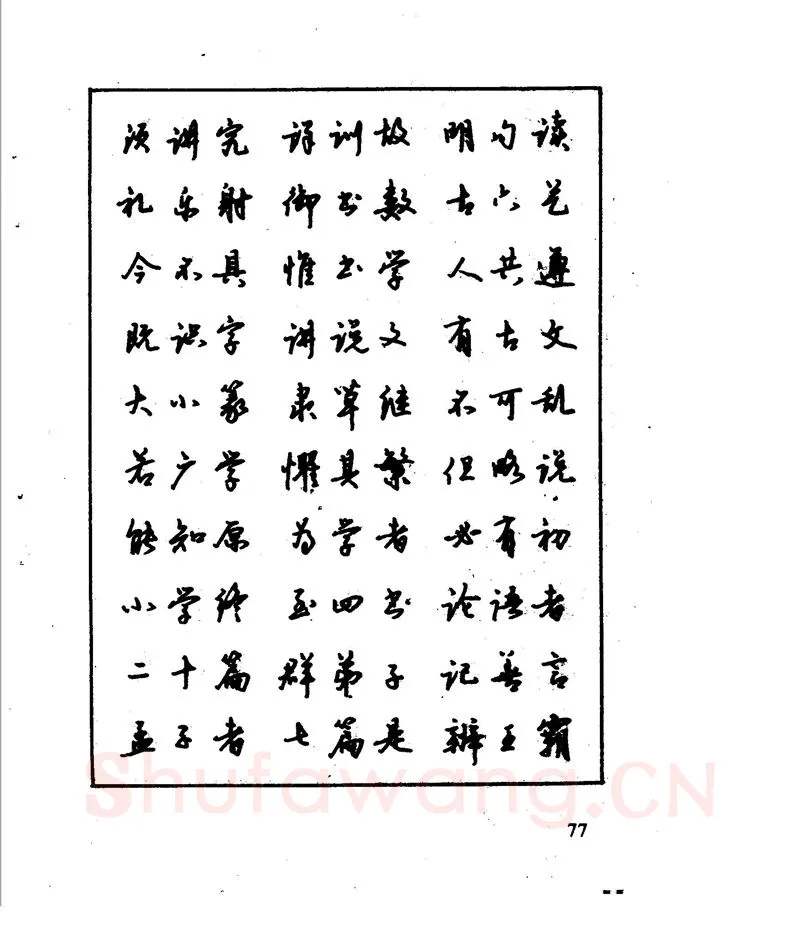 须讲究 详训故 明句读
礼乐射 御书数 古六艺
今不具 惟书学 人共遵
既识字 讲说文 有古文
大小篆 隶草继 不可乱
若广学 惧其繁 但略说
能知原 为学者 必有初
小学终 至四书 论语者
二十篇 群弟子 记善言
孟子者 七篇是 辨王霸
Shufawang.CN
77